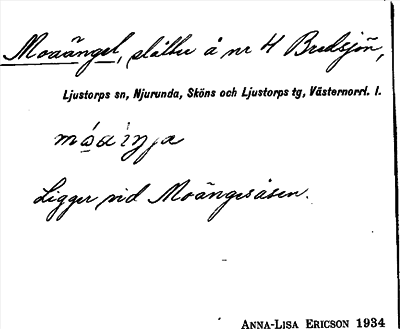 Moaängel, slåtter å nr 4 Bredsjön,
Ljustorps sn, Njurunda, Sköns och Ljustorps tg, Västernorrl. l.
Ligger vid Moängesåsen.
ANNA-LISA ERICSON 1934